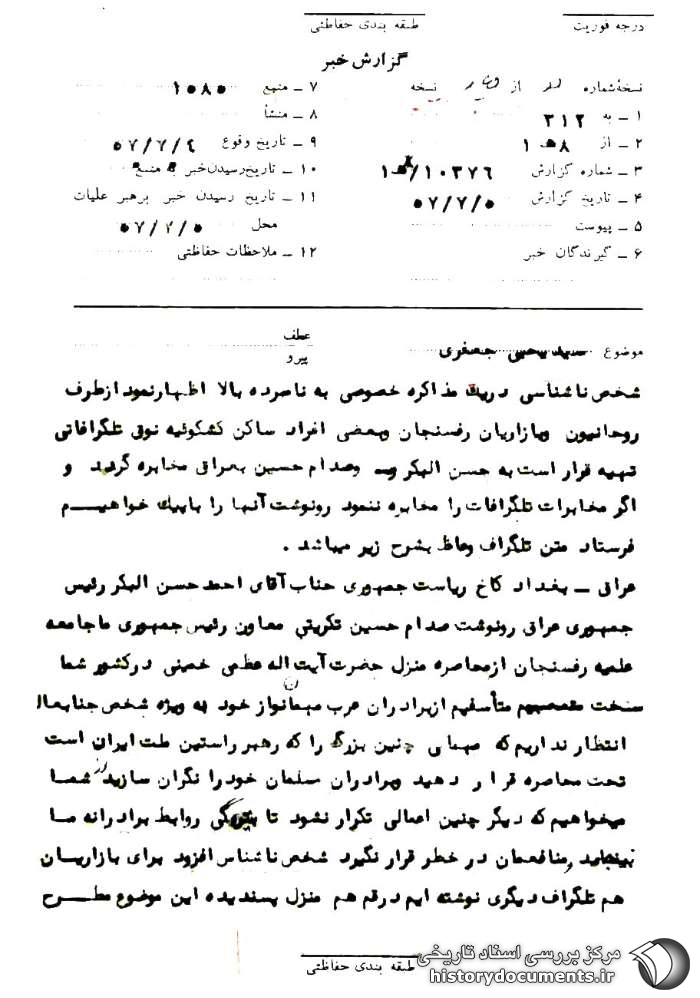 درجه فوریت
طبقه بندی حفاظتی
گزارش خبر
نسخه شماره از نسخه
۱ ـ به ۳۱۲
۲ ـ از ۸ هـ ۱
۳ ـ شماره گزارش ۱۰۳۷۶/هـ ۱
۴ ـ تاریخ گزارش ۵۷/۷/۵
۵ ـ پیوست
۶ ـ گیرندگان خبر
۷ ـ منبع ۱۰۸۵
۸ ـ منشأ
۹ ـ تاریخ وقوع ۵۷/۷/۴
۱۰ ـ تاریخ رسیدن خبر به منبع
۱۱ ـ تاریخ رسیدن خبر برهبر علیات
محل ۵۷/۷/۵
۱۲ ـ ملاحظات حفاظتی
موضوع سیدیحیی جعفری
عطف
پیرو
شخص ناشناسی دریک مذاکره خصوصی به نامبرده بالا اظهارنمود ازطرف
روحانیون وبازاریان رفسنجان وبعضی افراد ساکن کشکوئیه نوق تلگرافاتی
تهیه قرار است به حسن البکر وصدام حسین بعراق مخابره گردید و
اگر مخابرات تلگرافات را مخابره ننمود رونوشت آنها را باپیک خواهیم
فرستاد متن تلگراف وعاظ بشرح زیر میباشد .
عراق ـ بغداد کاخ ریاست جمهوری جناب آقای احمدحسن البکر رئیس
جمهوری عراق رونوشت صدام حسین تکریتی معاون رئیس جمهوری ماجامعه
علمیه رفسنجان ازمحاصره منزل حضرت آیت اله عظمی خمینی درکشور شما
سخت متأسفیم ازبرادران عرب میهمانواز خود به ویژه شخص جنابعالی
انتظار نداریم که میهمانی چنین بزرگ را که رهبر راستین ملت ایران است
تحت محاصره قرار دهید وبرادران مسلمان خودرا نگران سازید از شما
میخواهیم که دیگر چنین اعمالی تکرار نشود تا روابط برادرانه ما
نینجامد ومنافعمان در خطر قرار نگیرد شخص ناشناس افزود برای بازاریان
هم تلگراف دیگری نوشته ایم درقم هم منزل پسندیده این موضوع مطرح
طبقه بندی حفاظتی
مرکز بررسی اسناد تاریخی
historydocuments.ir